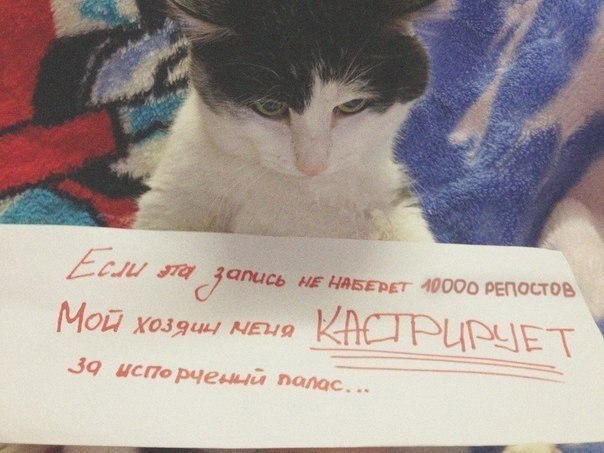 Если эта запись не наберет 10000 репостов
Мой хозяин меня КАСТРИРУЕТ
за испорченый палас...